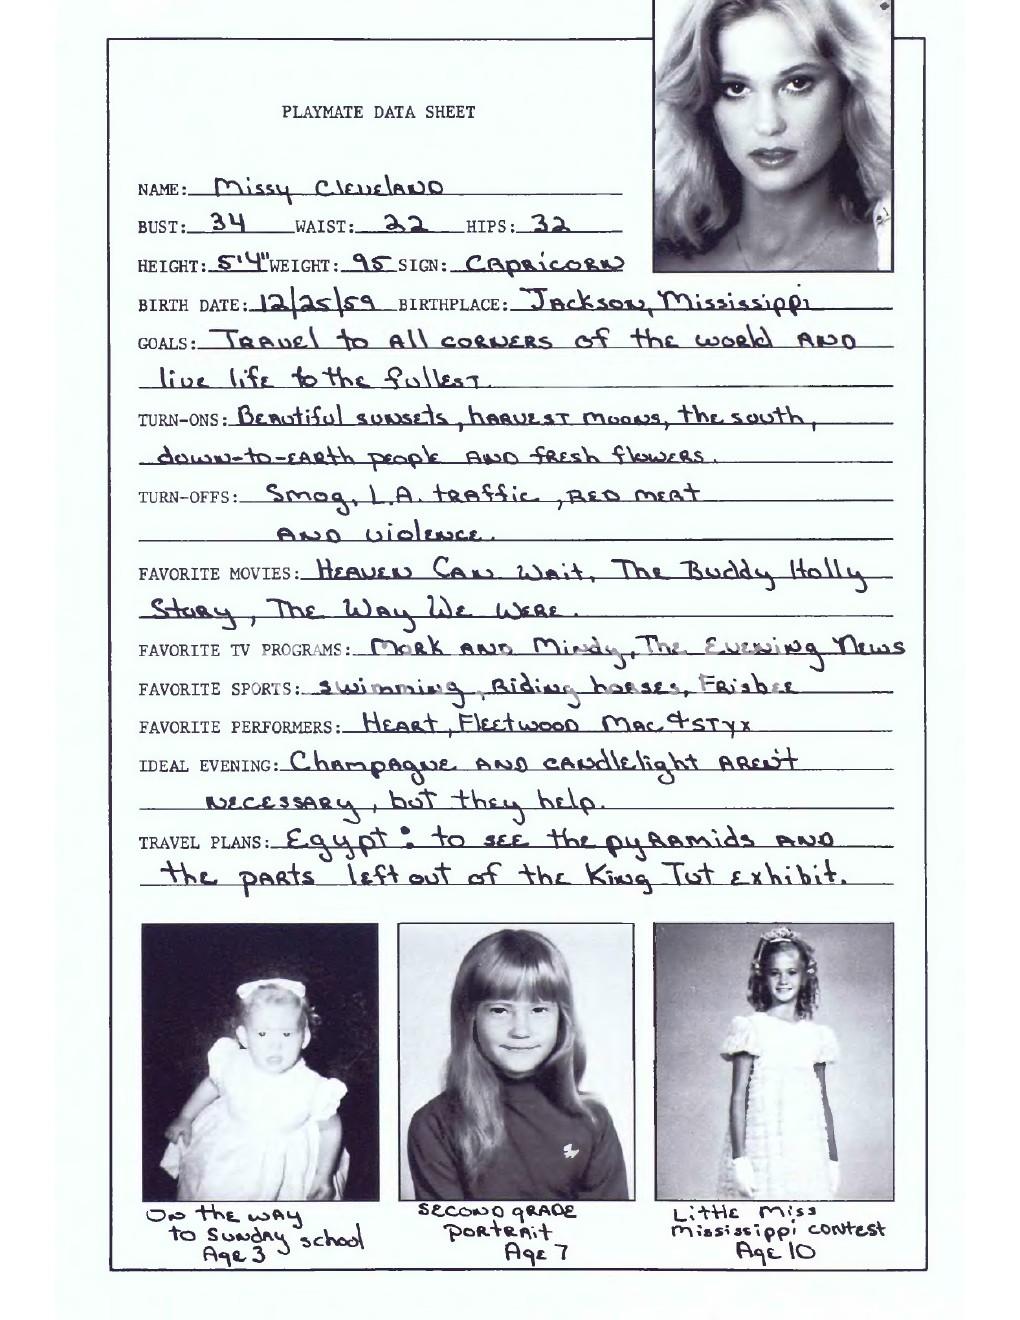 PLAYMATE DATA SHEET
NAME: Missy Cleveland
BUST: 34 WAIST: 22 HIPS: 32
HEIGHT: 5'4" WEIGHT: 95 SIGN: Capricorn
BIRTH DATE: 12/25/59 BIRTHPLACE: Jackson, Mississippi
GOALS: Travel to all corners of the world and
live life to the fullest.
TURN-ONS: Beautiful sunsets, harvest moons, the south,
down-to-earth people and fresh flowers.
TURN-OFFS: Smog, L.A. traffic, red meat
and violence.
FAVORITE MOVIES: Heaven Can Wait, The Buddy Holly
Story, The Way We Were.
FAVORITE TV PROGRAMS: Mork and Mindy, The Evening News
FAVORITE SPORTS: swimming, Riding horses, Frisbee
FAVORITE PERFORMERS: Heart, Fleetwood Mac & Styx
IDEAL EVENING: Champagne and candlelight aren't
necessary, but they help.
TRAVEL PLANS: Egypt: to see the pyramids and
the parts left out of the King Tut exhibit.
On the way
to Sunday school
Age 3
Second grade
portrait
Age 7
Little Miss
Mississippi contest
Age 10